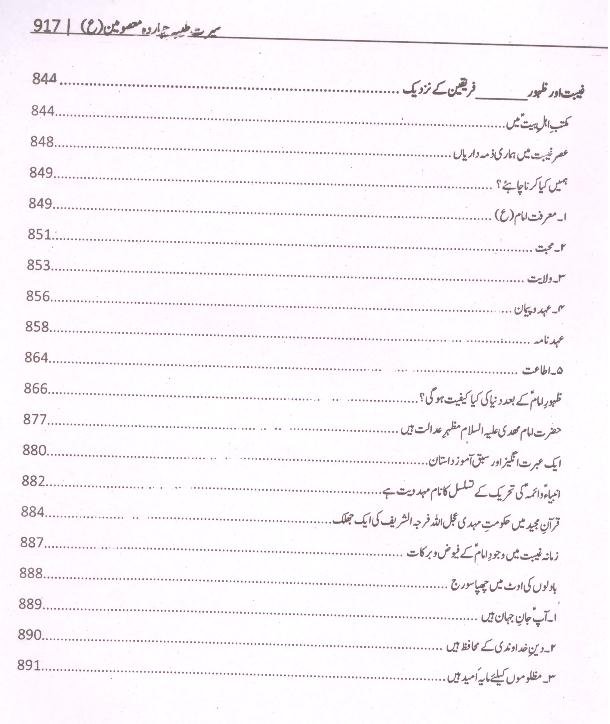 سیرت طیبہ چہاردہ معصومین (ع) | 917
غیبت اور ظہور ______ فریقین کے نزدیک ........ 844
مکتبِ اہل بیتؑ میں ........ 844
عصر غیبت میں ہماری ذمہ داریاں ........ 848
ہمیں کیا کرنا چاہئے؟ ........ 849
۱۔ معرفت امام (ع) ........ 849
۲۔ محبت ........ 851
۳۔ ولایت ........ 853
۴۔ عہد و پیمان ........ 856
عہد نامہ ........ 858
۵۔ اطاعت ........ 864
ظہورِ امامؑ کے بعد دنیا کی کیا کیفیت ہوگی؟ ........ 866
حضرت امام مھدی علیہ السلام مظہرِ عدالت ہیں ........ 877
ایک عبرت انگیز اور سبق آموز داستان ........ 880
انبیاءؑ و ائمہؑ کی تحریک کے تسلسل کا نام مہدویت ہے ........ 882
قرآن مجید میں حکومتِ مہدی عجل اللہ فرجہ الشریف کی ایک جھلک ........ 884
زمانہ غیبت میں وجودِ امامؑ کے فیوض و برکات ........ 887
بادلوں کی اوٹ میں چھپا سورج ........ 888
۱۔ آپؑ جانِ جہان ہیں ........ 889
۲۔ دینِ خداوندی کے محافظ ہیں ........ 890
۳۔ مظلوموں کیلئے مایہ اُمید ہیں ........ 891